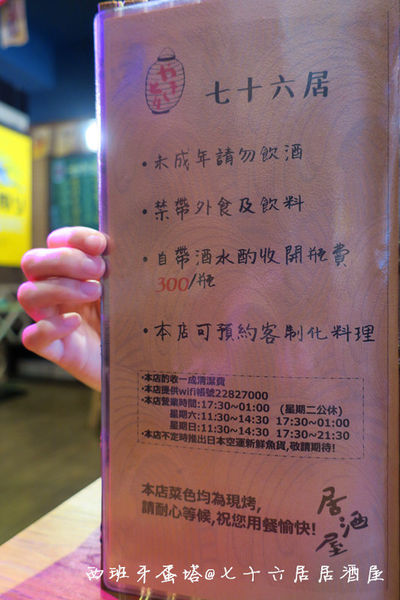 七十六居
•未成年請勿飲酒
•禁帶外食及飲料
•自帶酒水酌收開瓶費
300/瓶
•本店可預約客制化料理
•本店酌收一成清潔費
•本店提供wifi帳號22827000
•本店營業時間:17:30~01:00 (星期二公休)
星期六:11:30~14:30 17:30~01:00
星期日:11:30~14:30 17:30~21:30
•本店不定時推出日本空運新鮮魚貨,敬請期待!
本店菜色均為現烤,
請耐心等候,祝您用餐愉快!
居酒屋
西班牙蛋塔@七十六居居酒屋